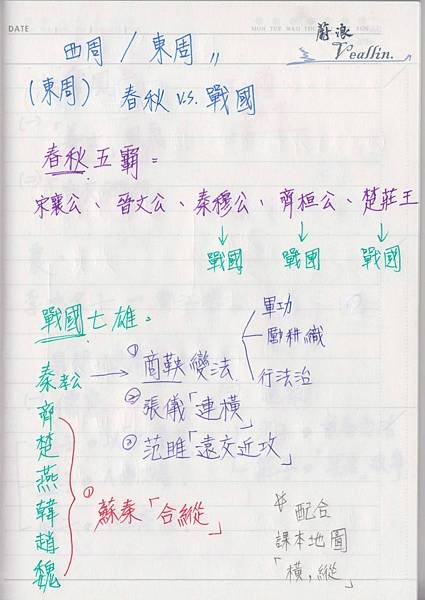 DATE
MON TUE WED THU FRI SAT SUN
蔚浪
Veallin.
西周 / 東周 〃
(東周) 春秋 v.s. 戰國
春秋五霸=
宋襄公、晉文公、秦穆公、齊桓公、楚莊王
↓ ↓ ↓
戰國 戰國 戰國
戰國七雄。
軍功
勵耕織
行法治
秦 → ①商鞅變法
②張儀「連橫」
③范雎「遠交近攻」
齊
楚
燕
韓
趙
魏
①蘇秦「合縱」
配合
課本地圖
「橫,縱」